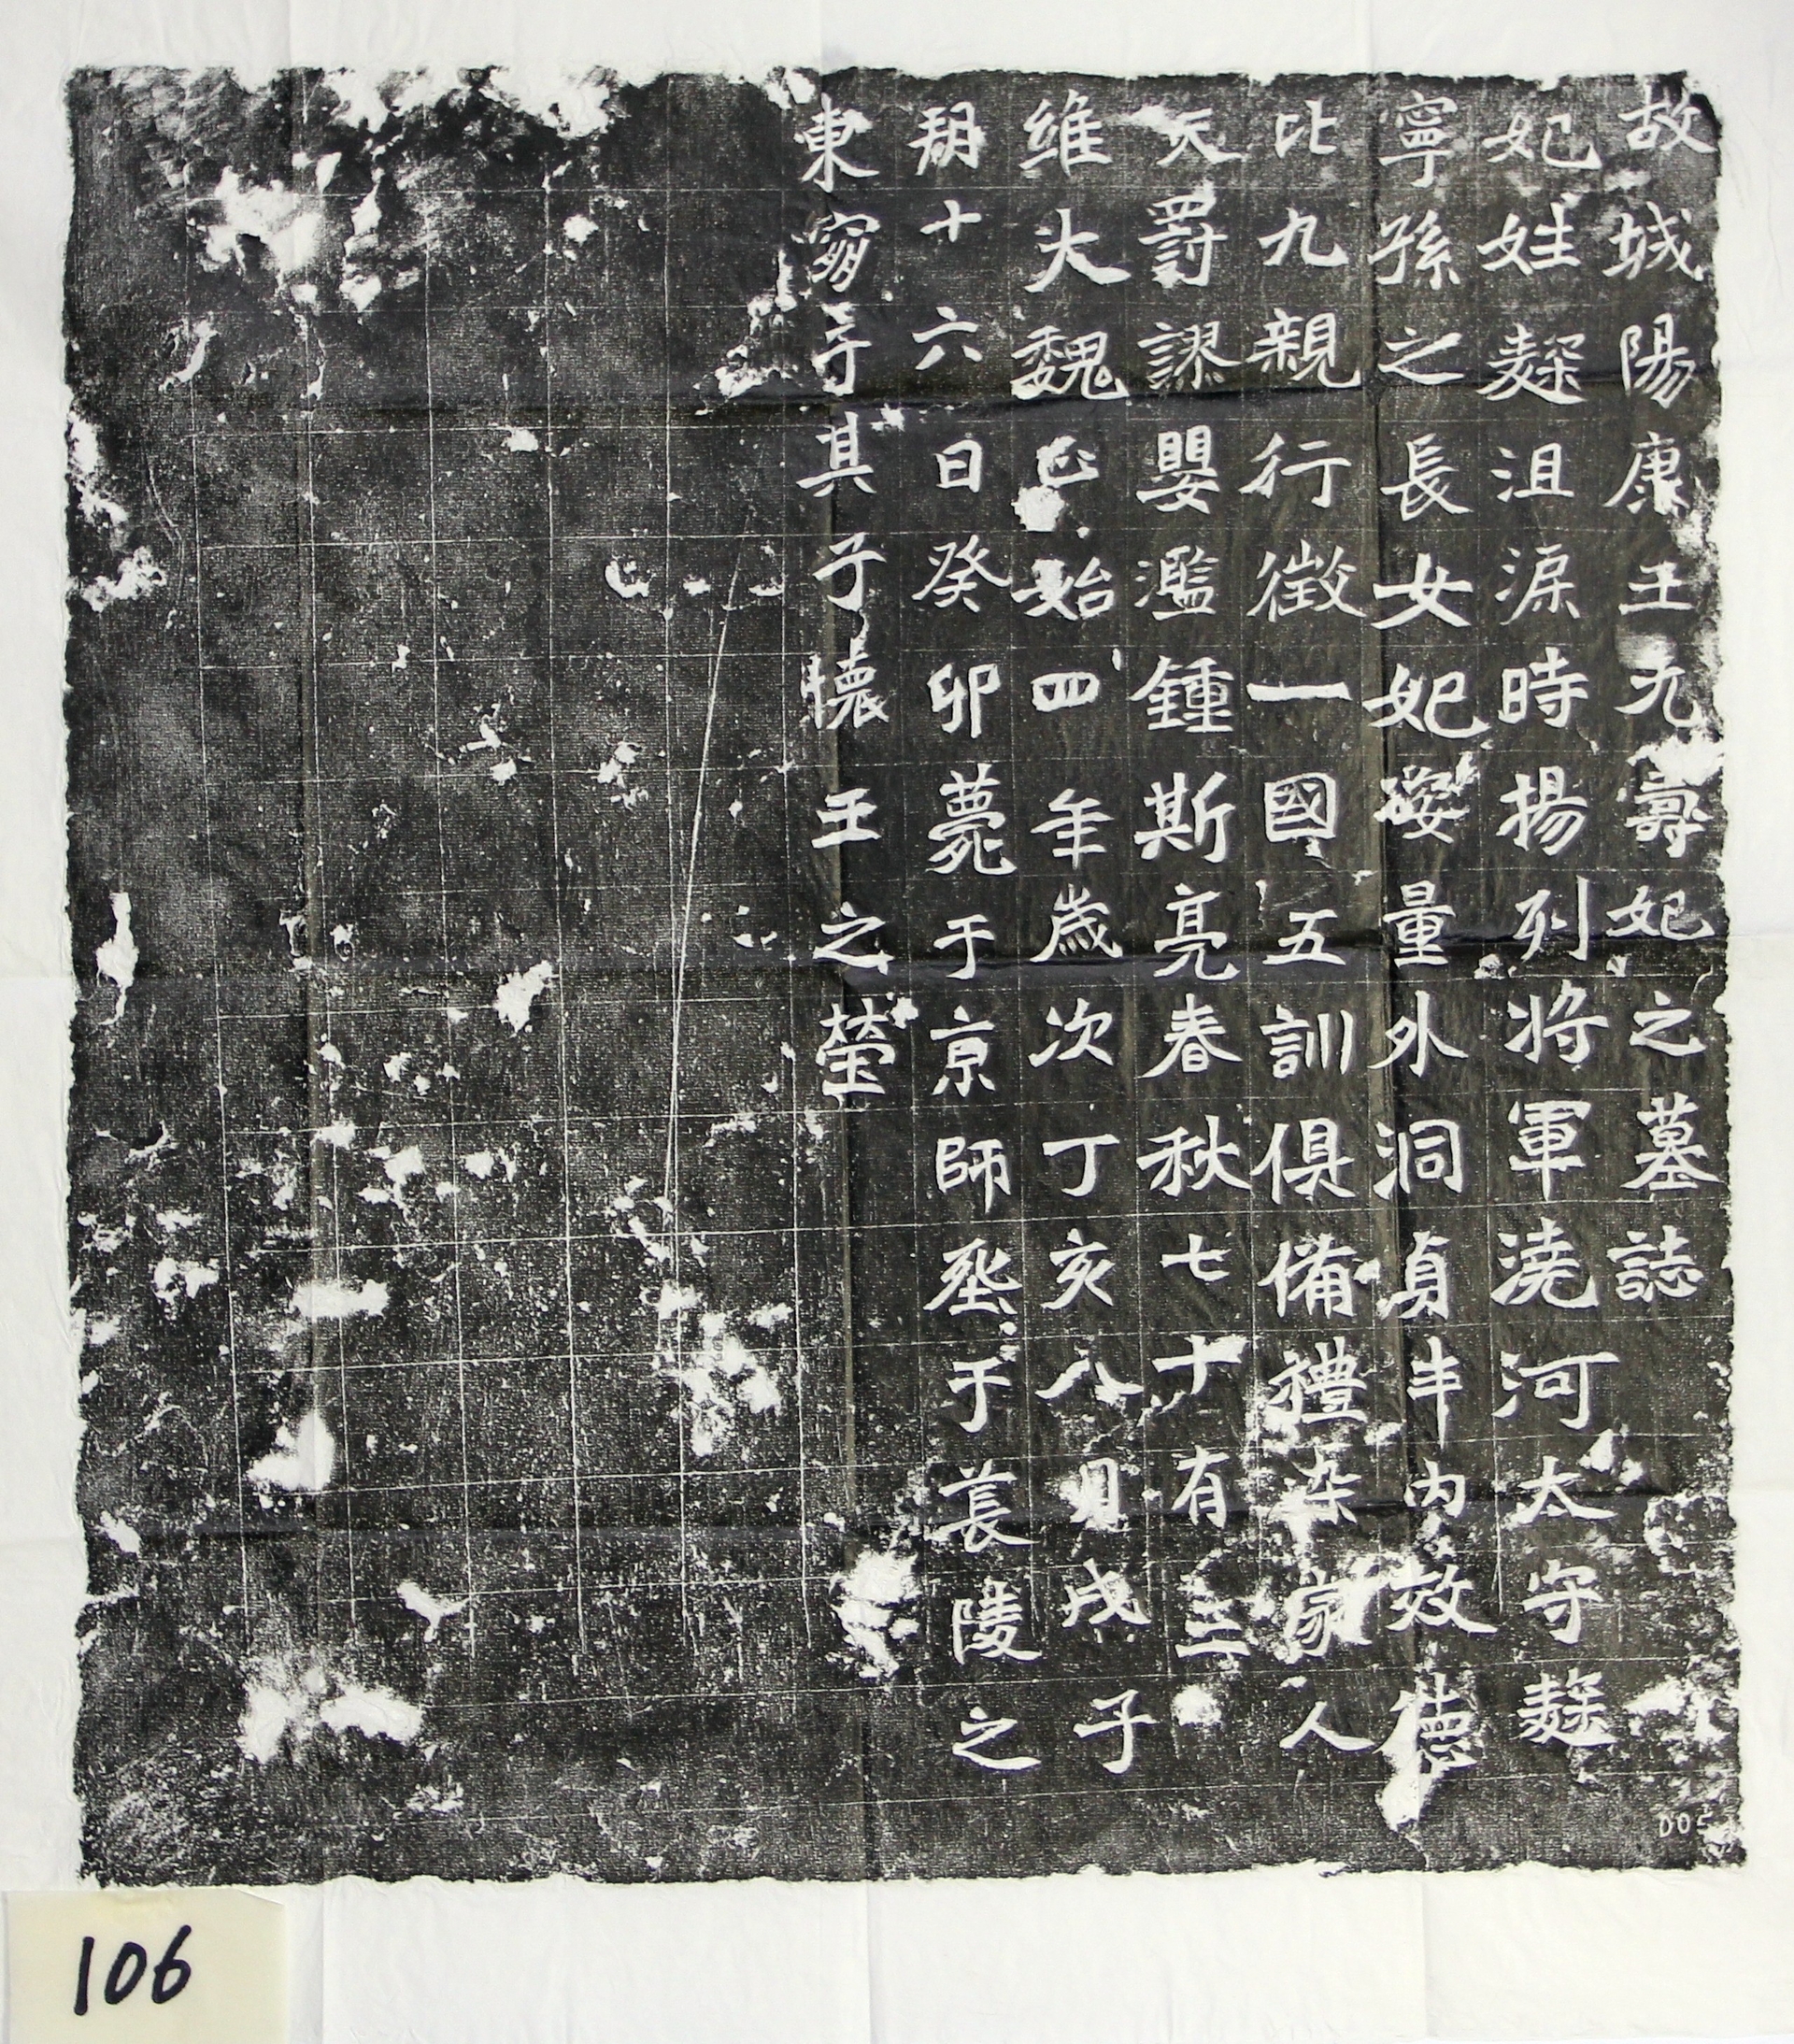 故城陽康王元壽妃之墓誌
妃姓麹沮源時揚列將軍澆河太守麹
寧孫之長女妃姿量外洞貞半內效德
比九親行徵一國五訓俱備禮染家人
天罸謬嬰濫鍾斯亮春秋七十有三
維大魏正始四年歲次丁亥八月戊子
朔十六日癸卯薨于京師坙于萇陵之
東窮寺其子懷王之塋
D05
106